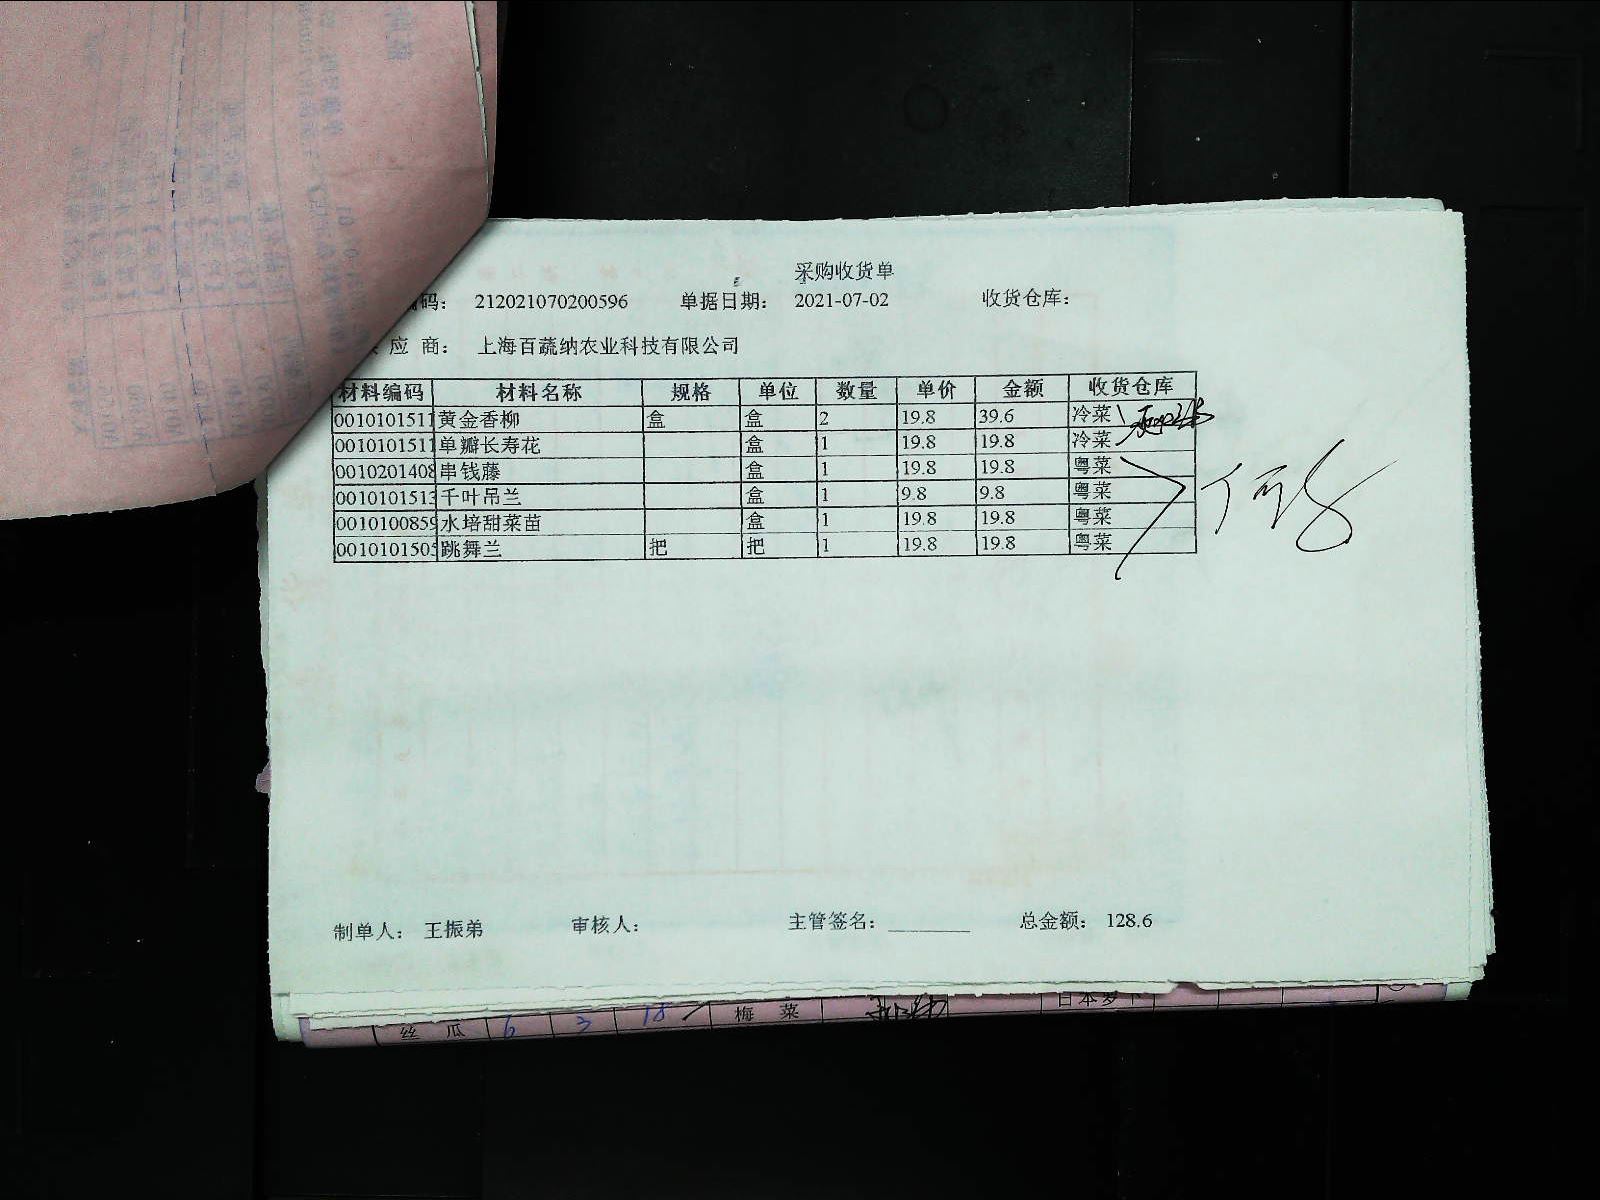 采购收货单
码： 212021070200596 单据日期： 2021-07-02 收货仓库：
应 商： 上海百蔬纳农业科技有限公司
材料编码 材料名称 规格 单位 数量 单价 金额 收货仓库
0010101511 黄金香柳 盒 盒 2 19.8 39.6 冷菜
0010101511 单瓣长寿花 盒 1 19.8 19.8 冷菜
0010201408 串钱藤 盒 1 19.8 19.8 粤菜
0010101513 千叶吊兰 盒 1 9.8 9.8 粤菜
0010100859 水培甜菜苗 盒 1 19.8 19.8 粤菜
0010101505 跳舞兰 把 把 1 19.8 19.8 粤菜
制单人： 王振弟 审核人： 主管签名： 总金额： 128.6
丝 瓜 6 3 18 梅 菜 日本萝卜